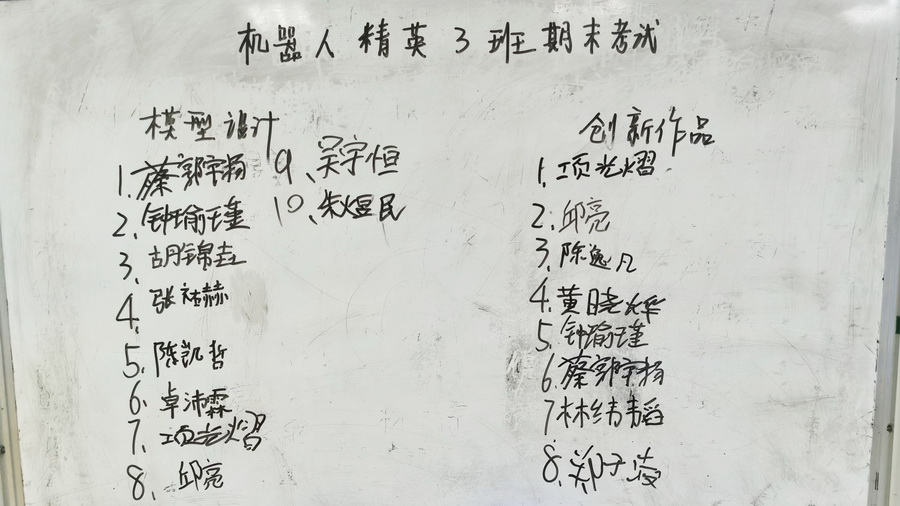 机器人精英3班期末考试
模型设计
1.蔡郭宇扬
2、钟瑜瑾
3、胡锦垚
4、张祐赫
5、陈凯哲
6、卓沛霖
7、项光熠
8、邱亮
9、吴宇恒
10、朱煜民
创新作品
1.项光熠
2、邱亮
3、陈逸凡
4、黄晓烨
5、钟瑜瑾
6、蔡郭宇扬
7林纬韬
8、郑子凌